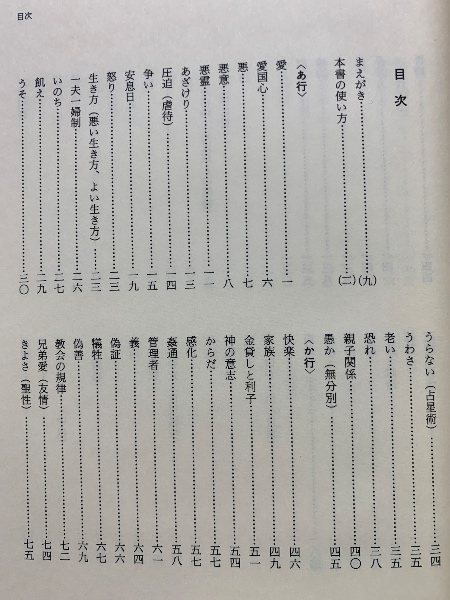 目次
目次
まえがき……(九)
本書の使い方……(一一)
〈あ行〉
愛……一
愛国心……六
悪……七
悪意……八
悪霊……一一
あざけり……一三
圧迫(虐待)……一四
争い……一五
安息日……一九
怒り……二三
生き方(悪い生き方、よい生き方)……二三
一夫一婦制……二六
いのち……二七
飢え……二九
うそ……三〇
うらない(占星術)……三四
うわさ……三五
老い……三五
恐れ……三八
親子関係……四〇
愚か(無分別)……四五
〈か行〉
快楽……四六
家族……四九
金貸しと利子……五一
神の意志……五四
からだ……五七
感化……五七
姦通……五八
管理者……六一
義……六四
偽証……六六
犠牲……六七
偽善……六九
教会の規律……七二
兄弟愛(友情)……七四
きよさ(聖性)……七五